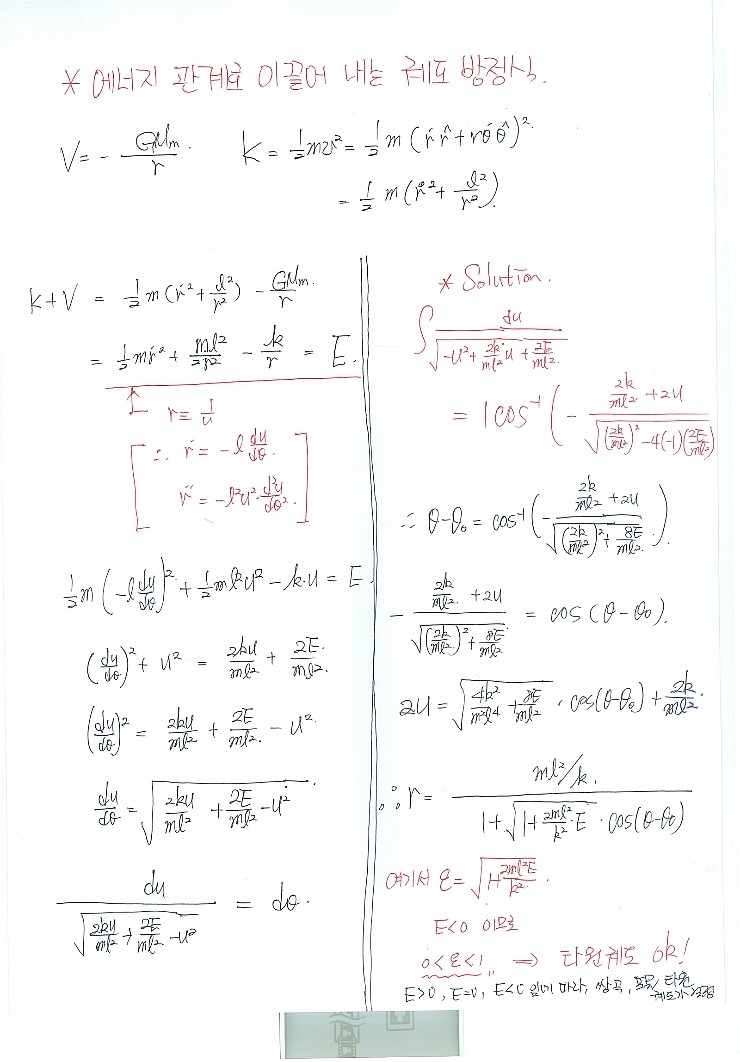 * 에너지 관계로 이끌어 내는 궤도 방정식.
V = - GMm/r    K = 1/2 mv² = 1/2 m (ṙ r̂ + rθ̇ θ̂)².
= 1/2 m (ṙ² + l²/r²).
K+V = 1/2 m (ṙ² + l²/r²) - GMm/r
= 1/2 mṙ² + ml²/2r² - k/r = E.
r ≡ 1/u
∴ ṙ = -l du/dθ.
r̈ = -l²u² · d²u/dθ².
1/2 m (-l du/dθ)² + 1/2 ml²u² - k·u = E.
(du/dθ)² + u² = 2ku/ml² + 2E/ml².
(du/dθ)² = 2ku/ml² + 2E/ml² - u².
du/dθ = √(2ku/ml² + 2E/ml² - u²)
du / √(2ku/ml² + 2E/ml² - u²) = dθ.
* Solution.
∫ du / √(-u² + 2k/ml² u + 2E/ml²)
= 1 cos⁻¹ (- (2k/ml² + 2u) / √((2k/ml²)² - 4(-1)(2E/ml²))
∴ θ-θ₀ = cos⁻¹ (- (2k/ml² + 2u) / √((2k/ml²)² + 8E/ml²)).
- (2k/ml² + 2u) / √((2k/ml²)² + 8E/ml²) = cos (θ-θ₀).
2u = √(4k²/m²l⁴ + 8E/ml²) · cos(θ-θ₀) + 2k/ml².
∴ r = (ml²/k) / (1 + √(1 + 2ml²/k² · E) · cos(θ-θ₀))
여기서 ε = √(1+ 2ml²E/k²).
E<0 이므로
0<ε<1 ⇒ 타원궤도 ok!
E>0, E=0, E<0 임에 따라, 쌍곡, 포물, 타원
궤도가 결정